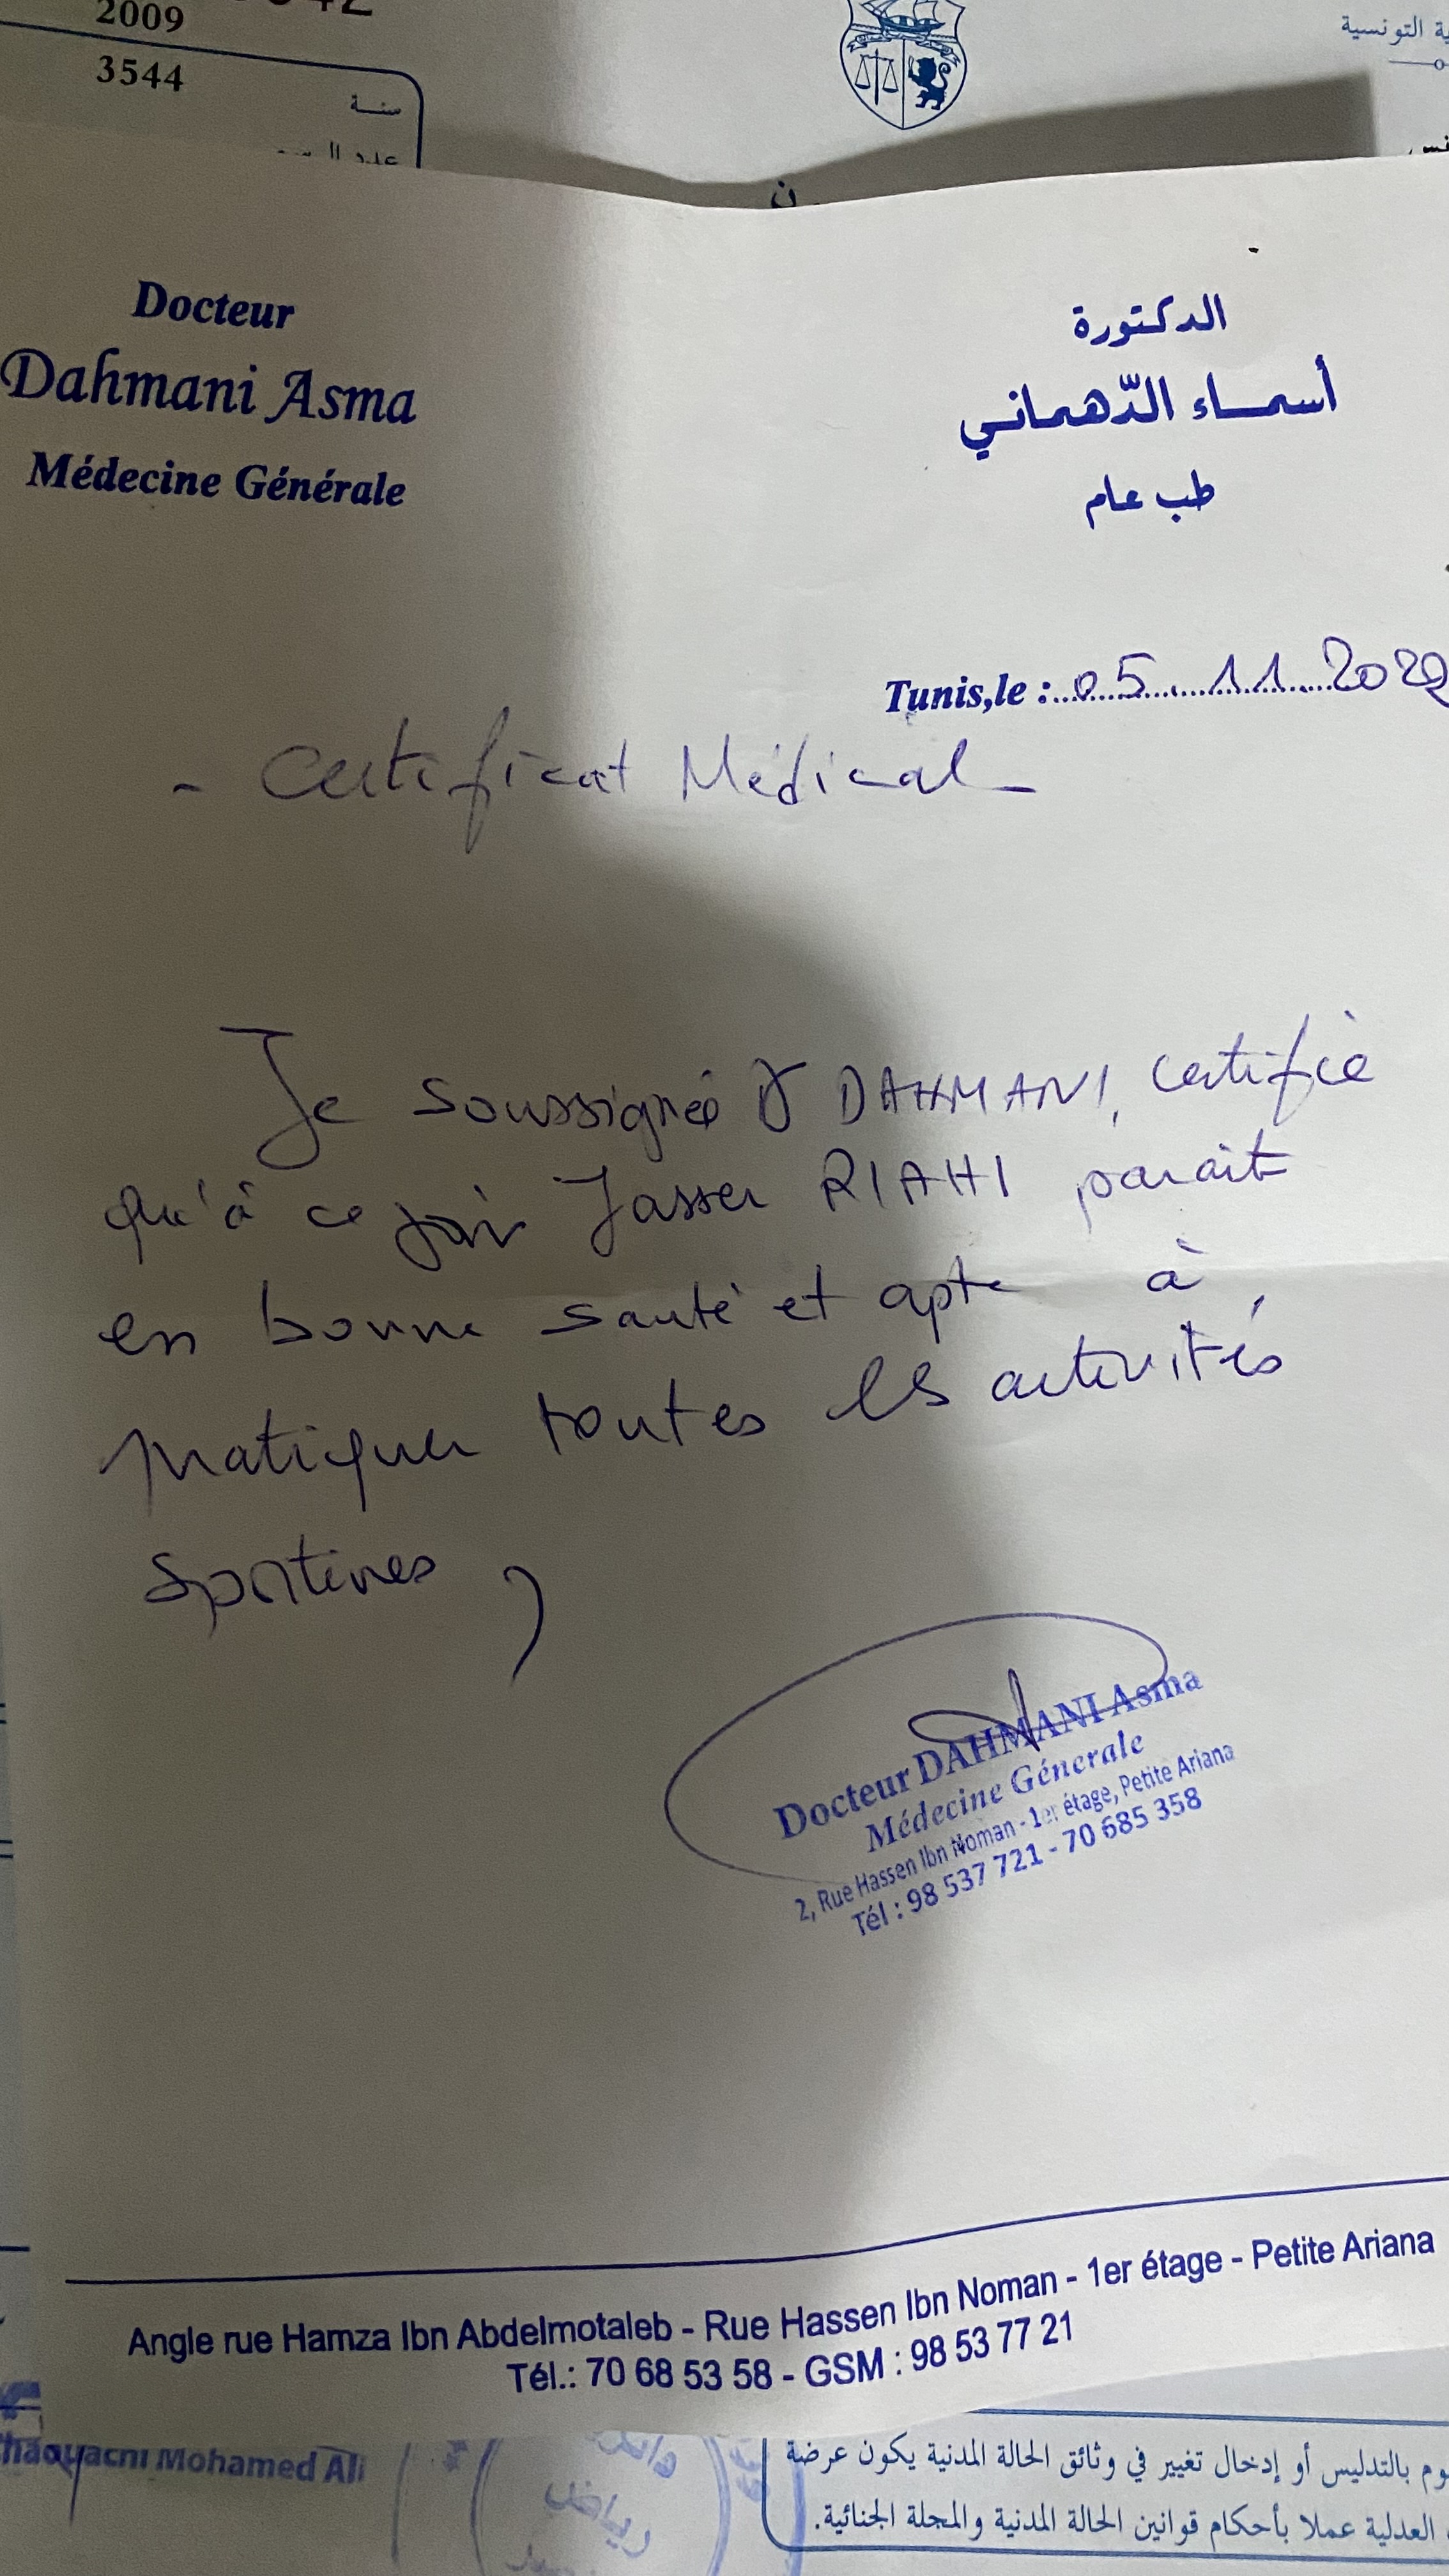 2009
3544
سنة
ية التونسية
Docteur
Dahmani Asma
Médecine Générale
الدكتورة
أسماء الدّهماني
طب عام
Tunis,le : 05 11 2022
- Certificat Médical -
Je soussignée Dr DAHMANI, certifie
qu'à ce jour Jasser RIAHI parait
en bonne santé et apte à
pratiquer toutes les activités
sportives
Docteur DAHMANI Asma
Médecine Génerale
2, Rue Hassen Ibn Noman - 1er étage, Petite Ariana
Tél : 98 537 721 - 70 685 358
Angle rue Hamza Ibn Abdelmotaleb - Rue Hassen Ibn Noman - 1er étage - Petite Ariana
Tél.: 70 68 53 58 - GSM : 98 53 77 21
Mohamed Ali
وم بالتدليس أو إدخال تغيير في وثائق الحالة المدنية يكون عرضة
العدلية عملا بأحكام قوانين الحالة المدنية والمجلة الجنائية.